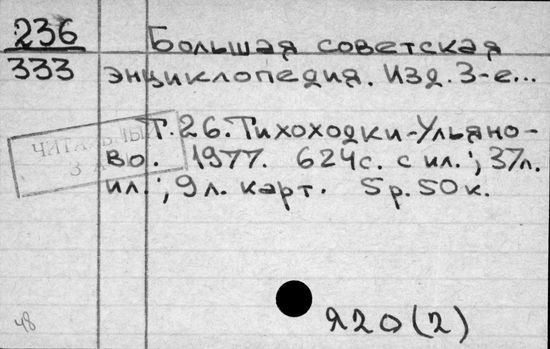 236
333
Большая советская
энциклопедия. Изд. 3-е...
Т. 26. Тихоходки-Ульяно-
во. 1977. 624с. с ил.; 37л.
ил.; 9л. карт. 5р. 50к.
ЧИТАЛЬНЫЙ
Я20(2)
48